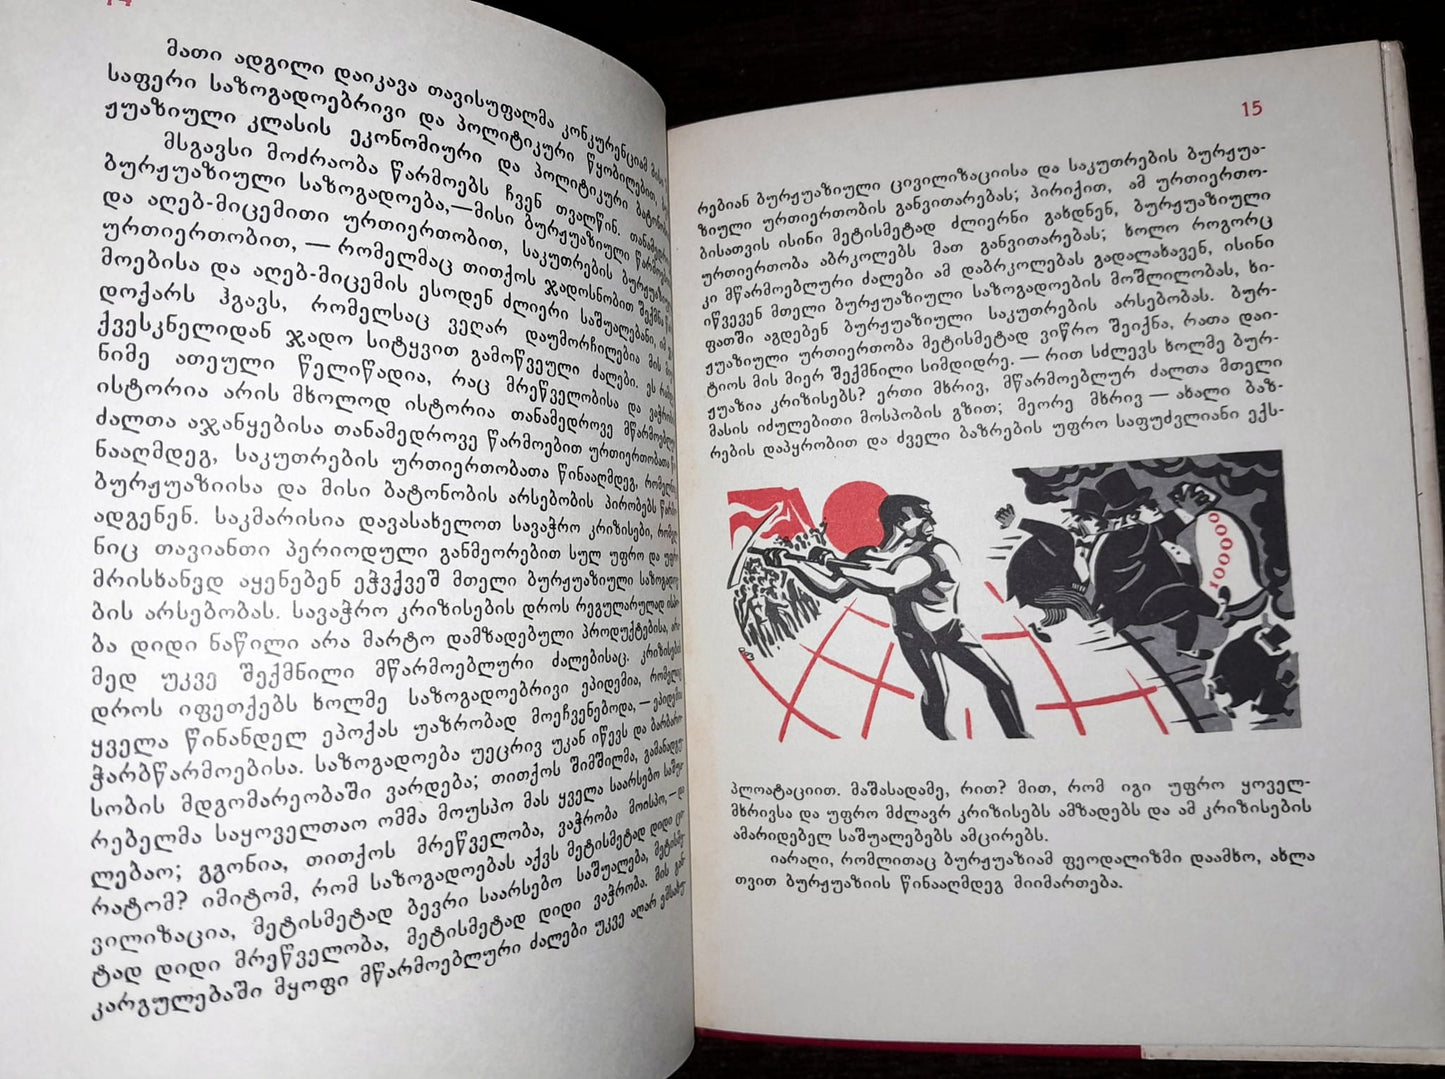 14
მათი ადგილი დაიკავა თავისუფალმა კონკურენციამ მისი
საფერი საზოგადოებრივი და პოლიტიკური წყობილებით,
ჟუაზიული კლასის ეკონომიური და პოლიტიკური ბატონობით
მსგავსი მოძრაობა წარმოებს ჩვენ თვალწინ. თანამედროვე
ბურჟუაზიული საზოგადოება,—მისი ბურჟუაზიული წარმოების
და აღებ-მიცემითი ურთიერთობით, საკუთრების ბურჟუაზიული
ურთიერთობით, — რომელმაც თითქოს ჯადოსნობით შექმნა
მოებისა და აღებ-მიცემის ესოდენ ძლიერი საშუალებანი, იმ
დოქარს ჰგავს, რომელსაც ვეღარ დაუმორჩილებია მის მიერ
ქვესკნელიდან ჯადო სიტყვით გამოწვეული ძალები. ეს რამდე
ნიმე ათეული წელიწადია, რაც მრეწველობისა და ვაჭრობის
ისტორია არის მხოლოდ ისტორია თანამედროვე მწარმოებლურ
ძალთა აჯანყებისა თანამედროვე წარმოებით ურთიერთობათა წი
ნააღმდეგ, საკუთრების ურთიერთობათა წინააღმდეგ, რომელნიც
ბურჟუაზიისა და მისი ბატონობის არსებობის პირობებს წარმო
ადგენენ. საკმარისია დავასახელოთ სავაჭრო კრიზისები, რომელ
ნიც თავიანთი პერიოდული განმეორებით სულ უფრო და უფრო
მრისხანედ აყენებენ ეჭვქვეშ მთელი ბურჟუაზიული საზოგადოე
ბის არსებობას. სავაჭრო კრიზისების დროს რეგულარულად ისპო
ბა დიდი ნაწილი არა მარტო დამზადებული პროდუქტებისა, არა
მედ უკვე შექმნილი მწარმოებლური ძალებისაც. კრიზისების
დროს იფეთქებს ხოლმე საზოგადოებრივი ეპიდემია, რომელიც
ყველა წინანდელ ეპოქას უაზრობად მოეჩვენებოდა,—ეპიდემია
ჭარბწარმოებისა. საზოგადოება უეცრივ უკან იწევს და ბარბარო
სობის მდგომარეობაში ვარდება; თითქოს შიმშილმა, გამანადგუ
რებელმა საყოველთაო ომმა მოუსპო მას ყველა საარსებო საშუა
ლებაო; გგონია, თითქოს მრეწველობა, ვაჭრობა მოისპო,—და
რატომ? იმიტომ, რომ საზოგადოებას აქვს მეტისმეტად დიდი ცი
ვილიზაცია, მეტისმეტად ბევრი საარსებო საშუალება, მეტისმე
ტად დიდი მრეწველობა, მეტისმეტად დიდი ვაჭრობა. მის გან
კარგულებაში მყოფი მწარმოებლური ძალები უკვე აღარ ემსახუ
15
რებიან ბურჟუაზიული ცივილიზაციისა და საკუთრების ბურჟუა-
ზიული ურთიერთობის განვითარებას; პირიქით, ამ ურთიერთო-
ბისათვის ისინი მეტისმეტად ძლიერნი გახდნენ, ბურჟუაზიული
ურთიერთობა აბრკოლებს მათ განვითარებას; ხოლო როგორც
კი მწარმოებლური ძალები ამ დაბრკოლებას გადალახავენ, ისინი
იწვევენ მთელი ბურჟუაზიული საზოგადოების მოშლილობას, ხი-
ფათში აგდებენ ბურჟუაზიული საკუთრების არსებობას. ბურ-
ჟუაზიული ურთიერთობა მეტისმეტად ვიწრო შეიქნა, რათა დაი-
ტიოს მის მიერ შექმნილი სიმდიდრე. — რით სძლევს ხოლმე ბურ-
ჟუაზია კრიზისებს? ერთი მხრივ, მწარმოებლურ ძალთა მთელი
მასის იძულებითი მოსპობის გზით; მეორე მხრივ — ახალი ბაზ-
რების დაპყრობით და ძველი ბაზრების უფრო საფუძვლიანი ექს-
100000
პლოატაციით. მაშასადამე, რით? მით, რომ იგი უფრო ყოველ-
მხრივსა და უფრო მძლავრ კრიზისებს ამზადებს და ამ კრიზისების
ამარიდებელ საშუალებებს ამცირებს.
იარაღი, რომლითაც ბურჟუაზიამ ფეოდალიზმი დაამხო, ახლა
თვით ბურჟუაზიის წინააღმდეგ მიიმართება.